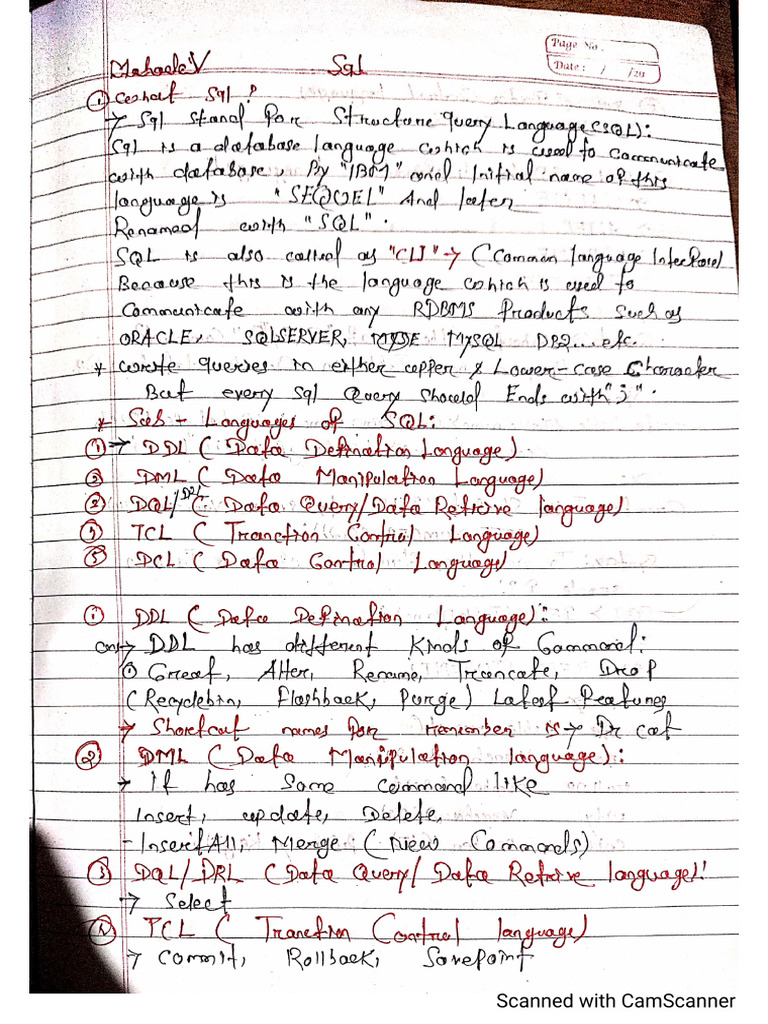 Page No.
Date: / /20
Mahadev Sql
① What Sql?
→ Sql stand for Structure Query Language (SQL):
Sql is a database language which is used to communicate
with database, By "IBM" and Initial name of this
language is "SEQUEL" And later
Renamed with "SQL".
SQL is also called as "CLI" → (Common language Interface)
Because this is the language which is used to
Communicate with any RDBMS Products such as
ORACLE, SQLSERVER, MySQL DB2...etc.
* write queries in either upper & Lower-case Character
But every Sql Query Should Ends with ";".
* Sub-Languages of SQL:
① → DDL (Data Defination Language)
② DML (Data Manipulation Language)
③ DQL/DRL (Data Query/Data Retrive language)
④ TCL (Tranction Control Language)
⑤ DCL (Data Control Language)
① DDL (Data Defination Language):
ans→ DDL has different Kinds of Command:
① Creat, Alter, Rename, Truncate, Drop
(Recyclebin, Flashback, Purge) Latest Features
→ Shortcut names for remember is → Dr cat
② DML (Data Manipulation language):
→ It has Some command like
Insert, update, Delete,
- Insert All, Merge (New Commands)
③ DQL/DRL (Data Query/Data Retrive language):
→ Select
TCL (Tranction Control language)
→ Commit, Rollback, Savepoint
Scanned with CamScanner